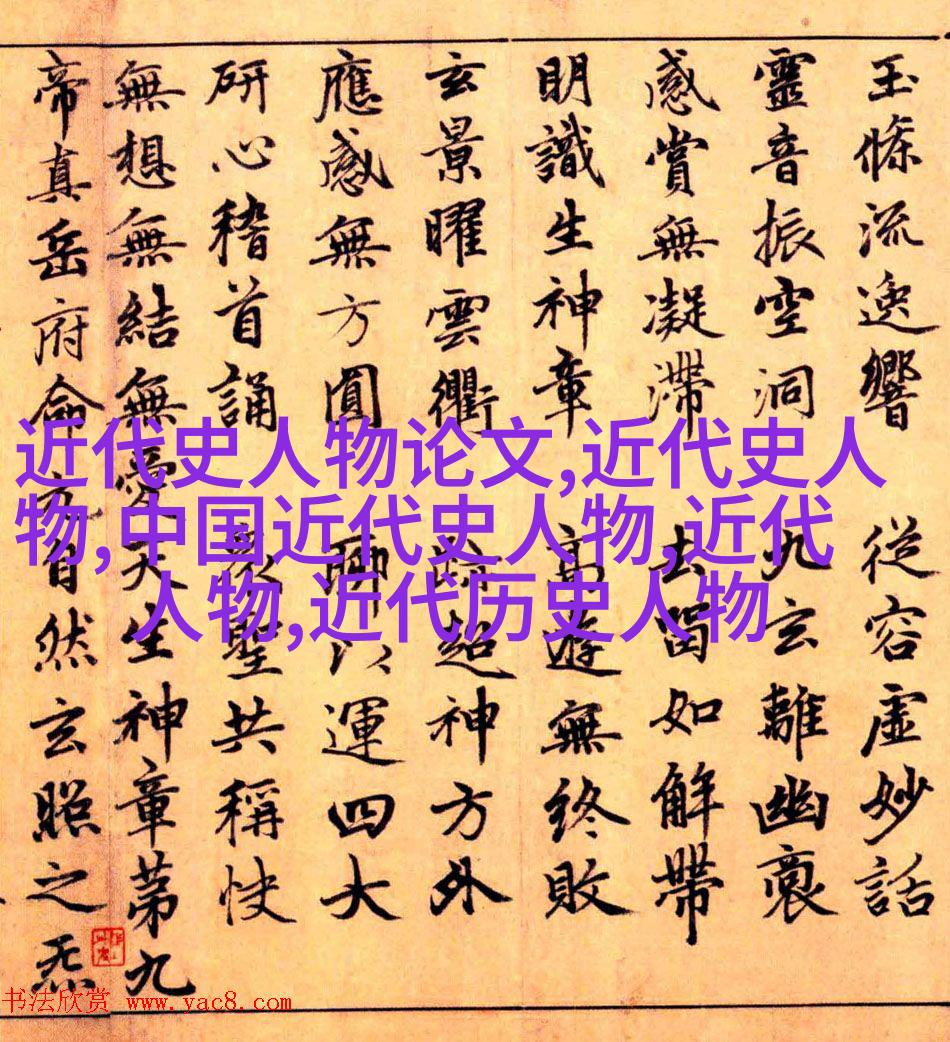 玉條流逸響 從容虛妙話
靈音振空洞 九玄離幽
感賞無凝滯 去留如解帶
明識生神章 高遊無終敗
玄景曜雲衢 超神方外
應感無方圓 聊以運四大
研心稽首誦 衆聖共稱快
無想無結無愛天生神章第九
帝真岳府侖元自然玄照之炁
近代史人物论文,近代史人
物,中国近代史人物,近代
人物,近代历史人物
书法欣赏 www.yac8.com